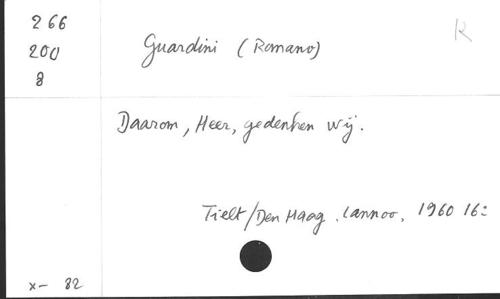 266
200
8
Guardini (Romano)
K
Daarom, Heer, gedenken wij.
Tielt/Den Haag, Lannoo, 1960 16:
x- 82